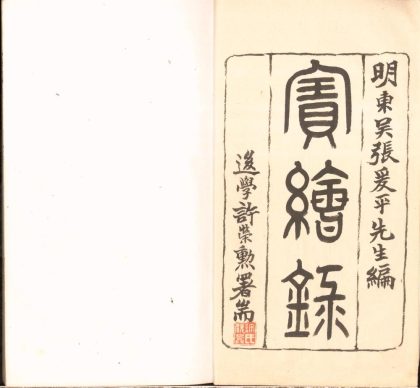 明東吳張爰平先生編
寶繪錄
後學許榮勲署耑